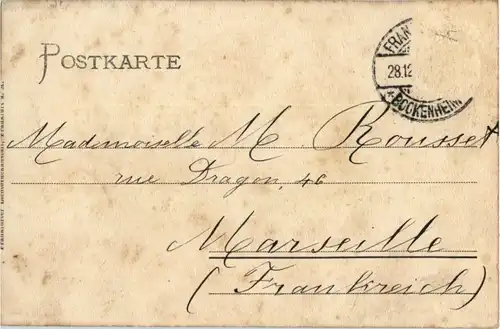 POSTKARTE
FRAN
28.12
*BOCKENHEIM
Mademoiselle M. Rousset
rue Dragon, 46
Marseille
(Frankreich)